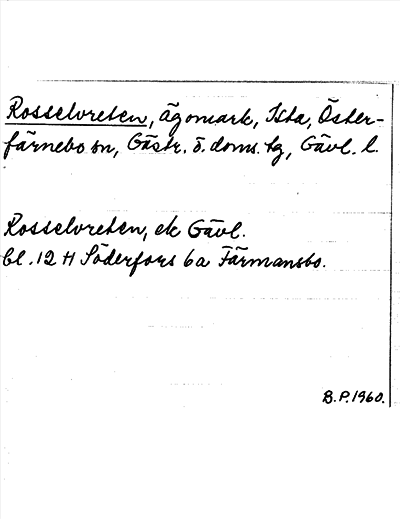 Rosselvreten, ägomark, Ista, Öster-
färnebo sn, Gästr. ö. doms. tg, Gävl. l.
Rosselvreten, ek Gävl.
bl. 12 H Söderfors 6a Färmansbo.
B.P. 1960.